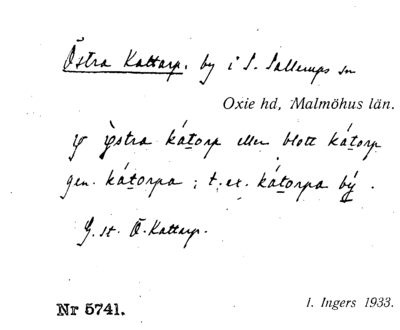 Östra Kattarp. by i S. Sallerups sn
Oxie hd, Malmöhus län.
östra kátorp eller blott kátorp
gen. kátorpa ; t. ex. kátorpa bý .
G. st. Ö. Kattarp.
Nr 5741.
I. Ingers 1933.